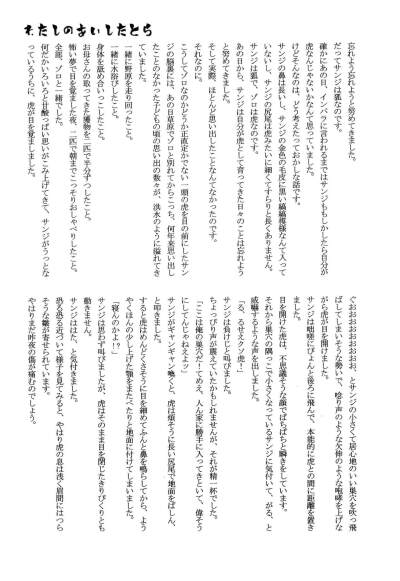 わたしのあいしたとら
忘れよう忘れようと努めてきました。
だってサンジは狐なのです。
確かにあの日、インパラに言われるまではサンジももしかしたら自分が
虎なんじゃないかなんて思っていました。
けどそんなのは、どう考えたっておかしな話です。
サンジの鼻は長いし、サンジの金色の毛皮に黒い縞模様なんて入って
いないし、サンジの尻尾は虎みたいに細くてすらりと長くありません。
サンジは狐で、ゾロは虎なのです。
あの日から、サンジは自分が虎として育ってきた日々のことは忘れよう
と努めてきました。
そして実際、ほとんど思い出したことなんてなかったのです。
それなのに。
こうしてゾロなのかどうか正直定かでない一頭の虎を目の前にしたサン
ジの脳裏には、あの日草原でゾロと別れてからこっち、何年来思い出し
たことのなかった子どもの頃の思い出の数々が、洪水のように溢れてき
ていました。
一緒に野原を走り回ったこと。
一緒に水浴びしたこと。
身体を舐め合いっこしたこと。
お母さんの取ってきた獲物を二匹で半分ずつしたこと。
怖い夢で目を覚ました夜、二匹で朝までこっそりおしゃべりしたこと。
全部、ゾロと一緒でした。
何だかいろいろと甘酸っぱい思いがこみ上げてきて、サンジがうっとな
っているうちに、虎が目を覚ましました。
ぐおおおおおおおおお、とサンジの小さくて居心地のいい巣穴を吹っ飛
ばしてしまいそうな勢いで、唸り声のような欠伸のような咆哮を上げな
がら虎が目を開けました。
サンジは咄嗟にぴょんと後ろに飛んで、本能的に虎との間に距離を置き
ました。
目を開けた虎は、不思議そうな顔でぱちぱちと瞬きをしています。
それから巣穴の隅っこで小さくなっているサンジに気付いて、がる、と
威嚇するような声を出しました。
「る、るせえクソ虎!」
サンジは負けじと叫びました。
ちょっぴり声が震えていたかもしれませんが、それが精一杯でした。
「ここは俺の巣穴だ!てめえ、人ん家に勝手に入ってきといて、偉そう
にしてんじゃねえよッ」
サンジがギャンギャン喚くと、虎は煩そうに長い尻尾で地面をばしん、
と叩きました。
すると虎はめんどくさそうに目を細めてふんと鼻を鳴らしてから、よう
やくほんの少し上げた顎をまたぺたりと地面に付けてしまいました。
「寝んのかよ!」
サンジは思わず叫びましたが、虎はそのまま目を閉じたきりぴくりとも
動きません。
サンジははた、と気付きました。
恐る恐る近づいて様子を見てみると、やはり虎の息は浅く眉間にはつら
そうな皺が寄せられています。
やはりまだ昨夜の傷が痛むのでしょう。